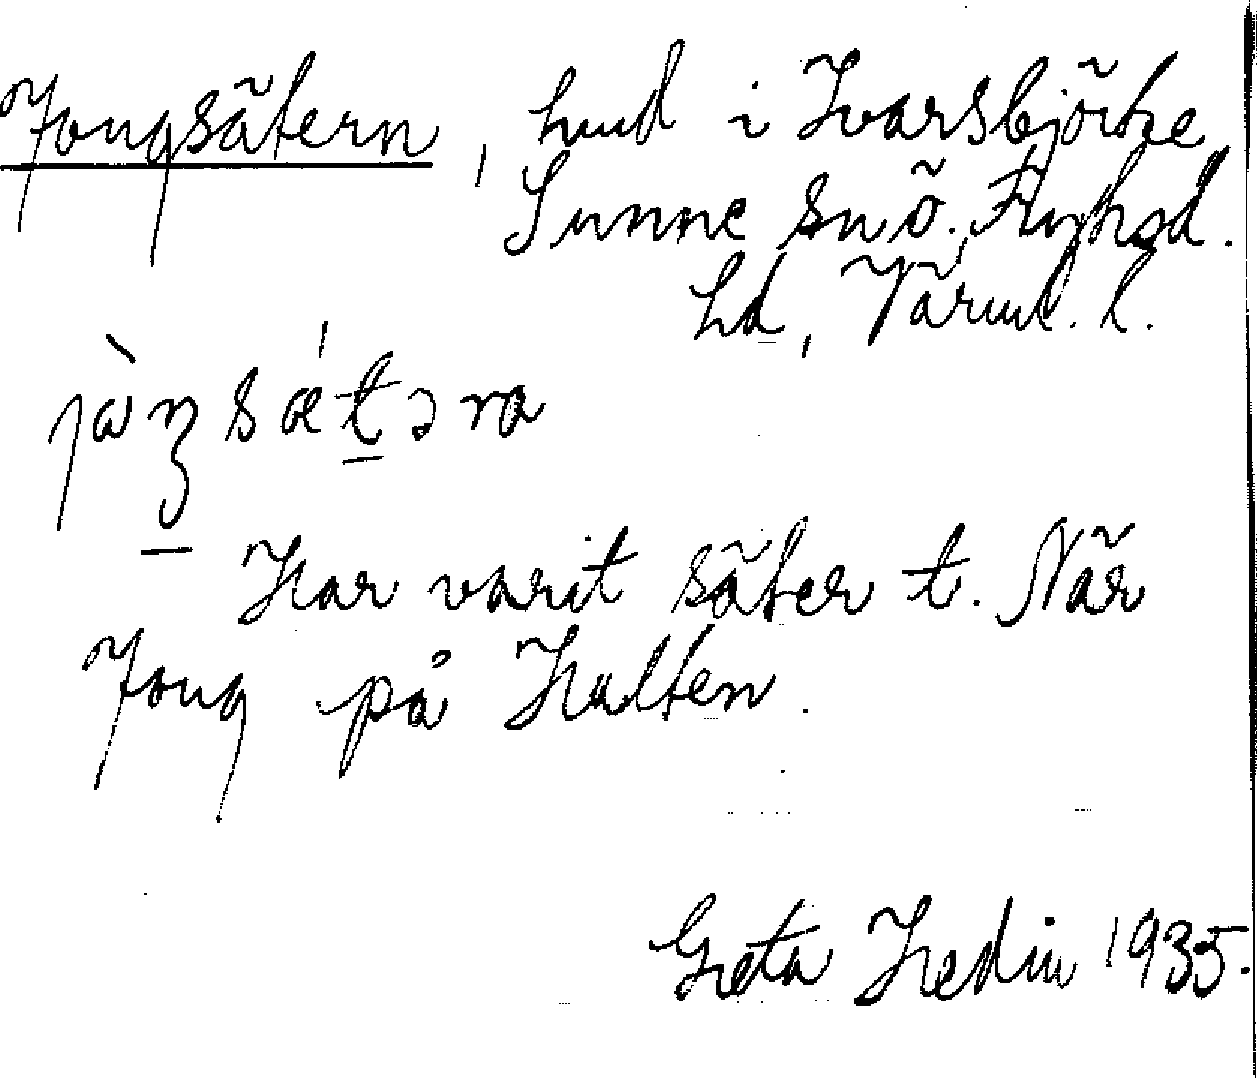 Jongsätern, hmd i Ivarsbjörke
Sunne sn ö. Fryksd.
hd, Värml. l.
jàŋsǽtəra
Har varit säter t. När
Jong på Hulten.
Greta Hedin 1935.